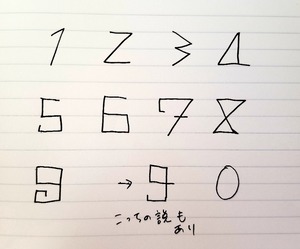 1 2 3 4
5 6 7 8
9 → 9 0
こっちの説も
あり